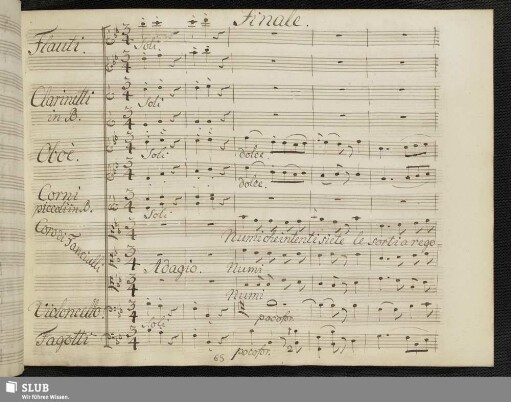 Finale.
Flauti.
Soli
Clarinetti
in B.
Soli
Oboè.
Soli
dolce.
dolce.
Corni
piccoli in B.
Soli
Coro di Fanciulli
Numi che intenti siete le sorti a rego-
Adagio.
Numi
Numi
Violoncello
Soli
poco for.
Fagotti
poco for.
65
SLUB
Wir führen Wissen.